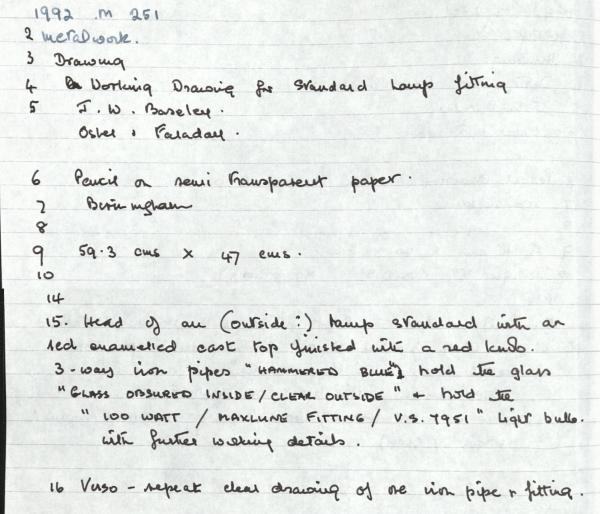 1992 M 251
2 Metalwork.
3 Drawing
4 Working Drawing for standard lamp fitting
5 J. W. Baseley.
Osler & Faraday.
6 Pencil on semi transparent paper.
7 Birmingham
8
9 59.3 cms x 47 cms.
10
14
15. Head of an (outside?) lamp standard with an
red enamelled cast top finished with a red knob.
3-way iron pipes "HAMMERED BLUE" hold the glass
"GLASS OBSURED INSIDE/CLEAR OUTSIDE" & hold the
"100 WATT / MAXLUME FITTING / V.S. 7951" light bulb.
with further working details.
16 Verso - repeat clear drawing of one iron pipe & fitting.